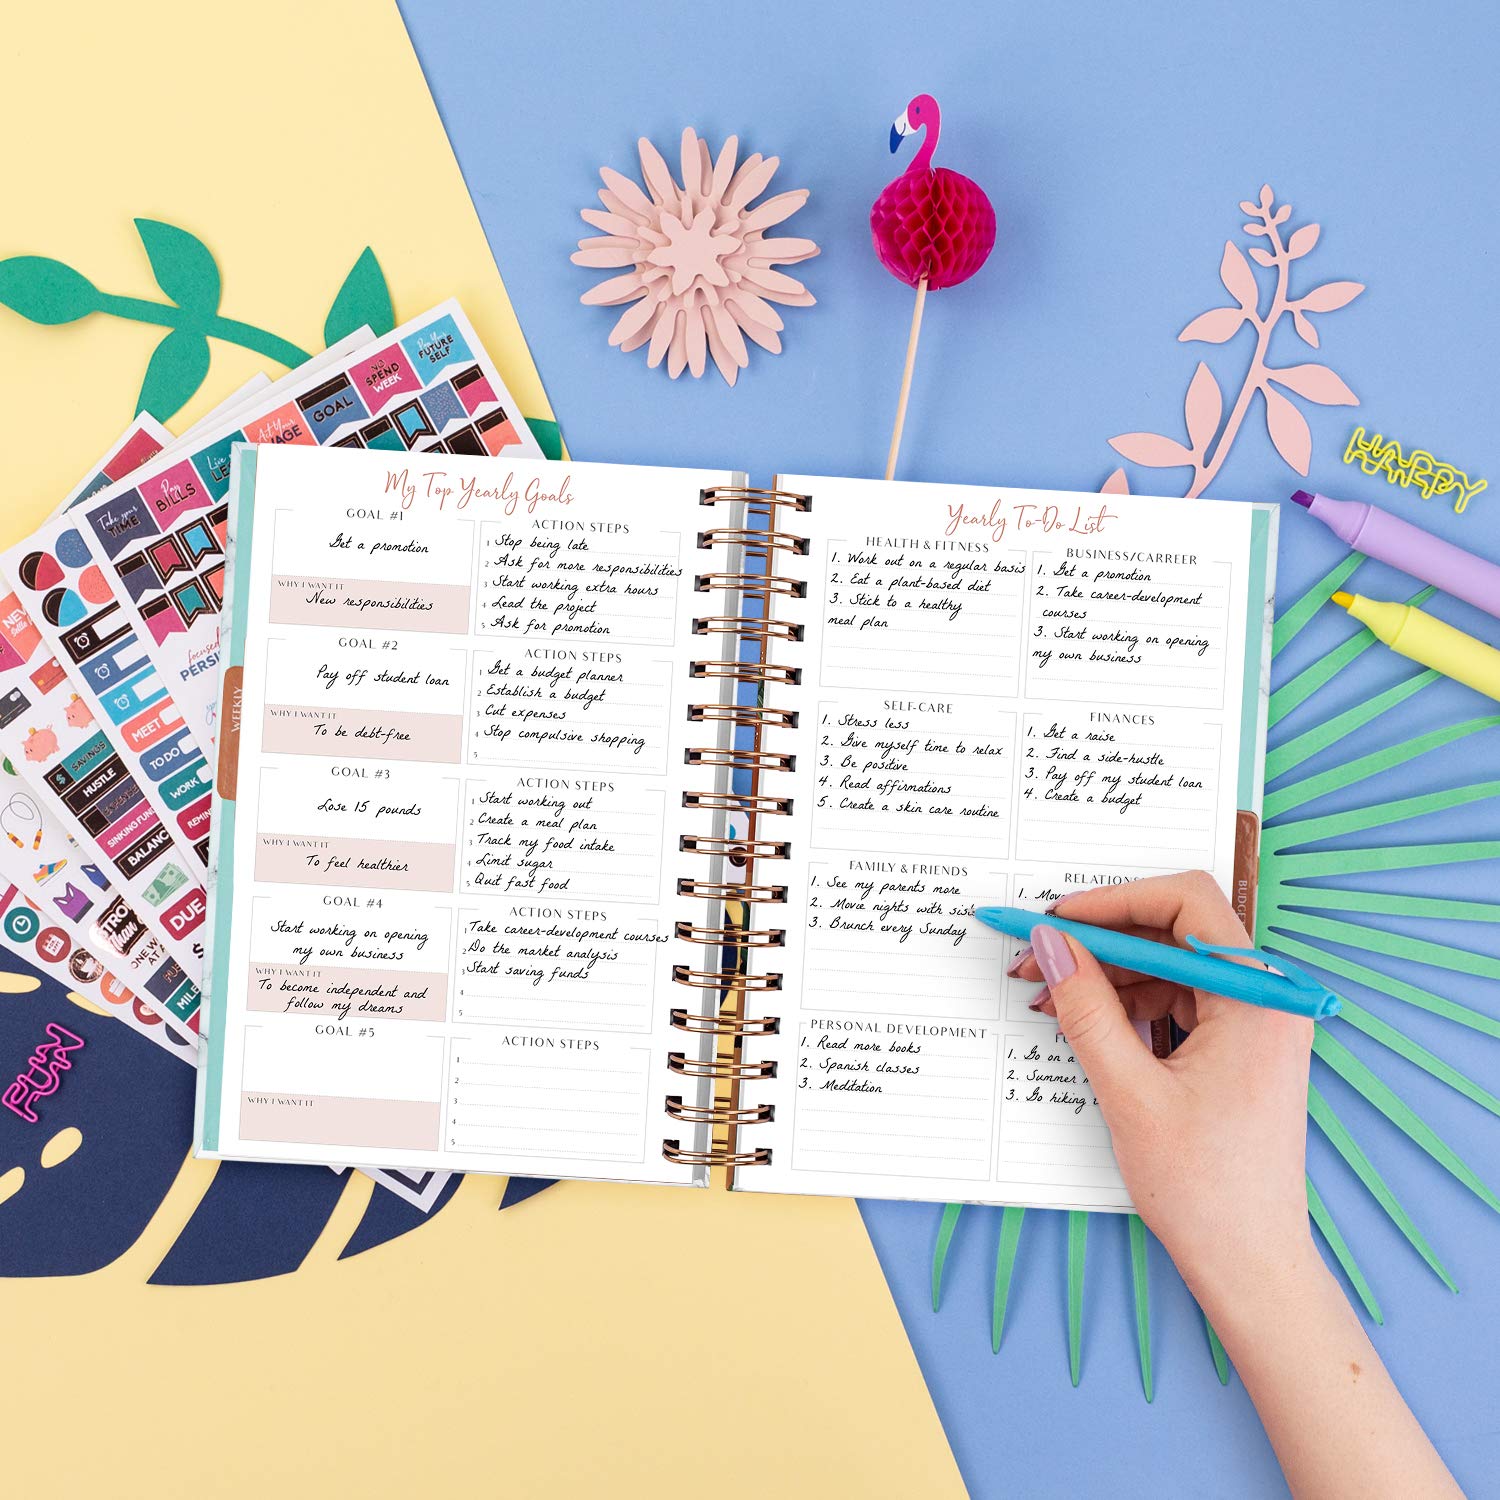 My Top Yearly Goals
GOAL #1
Get a promotion
WHY I WANT IT
New responsibilities
ACTION STEPS
1 Stop being late
2 Ask for more responsibilities
3 Start working extra hours
4 Lead the project
5 Ask for promotion
GOAL #2
Pay off student loan
WHY I WANT IT
To be debt-free
ACTION STEPS
1 Get a budget planner
2 Establish a budget
3 Cut expenses
4 Stop compulsive shopping
5
GOAL #3
Lose 15 pounds
WHY I WANT IT
To feel healthier
ACTION STEPS
1 Start working out
2 Create a meal plan
3 Track my food intake
4 Limit sugar
5 Quit fast food
GOAL #4
Start working on opening
my own business
WHY I WANT IT
To become independent and
follow my dreams
ACTION STEPS
1 Take career-development courses
2 Do the market analysis
3 Start saving funds
4
5
GOAL #5
WHY I WANT IT
ACTION STEPS
1
2
3
4
5
Yearly To-Do List
HEALTH & FITNESS
1. Work out on a regular basis
2. Eat a plant-based diet
3. Stick to a healthy
meal plan
BUSINESS/CARREER
1. Get a promotion
2. Take career-development
courses
3. Start working on opening
my own business
SELF-CARE
1. Stress less
2. Give myself time to relax
3. Be positive
4. Read affirmations
5. Create a skin care routine
FINANCES
1. Get a raise
2. Find a side-hustle
3. Pay off my student loan
4. Create a budget
FAMILY & FRIENDS
1. See my parents more
2. Movie nights with
3. Brunch every Sunday
1.
PERSONAL DEVELOPMENT
1. Read more books
2. Spanish classes
3. Meditation
1. Go on a
2. Summer
3. Go hiking
WEEKLY
HAPPY
FUN
Pay Your
FUTURE
SELF
NO
SPEND
WEEK
GOAL
Act Your
WAGE
Pay
BILLS
Take your
TIME
focused
SAVINGS
HUSTLE
EXPENSE
SINKING FUND
MEET
TO DO
WORK
DUE